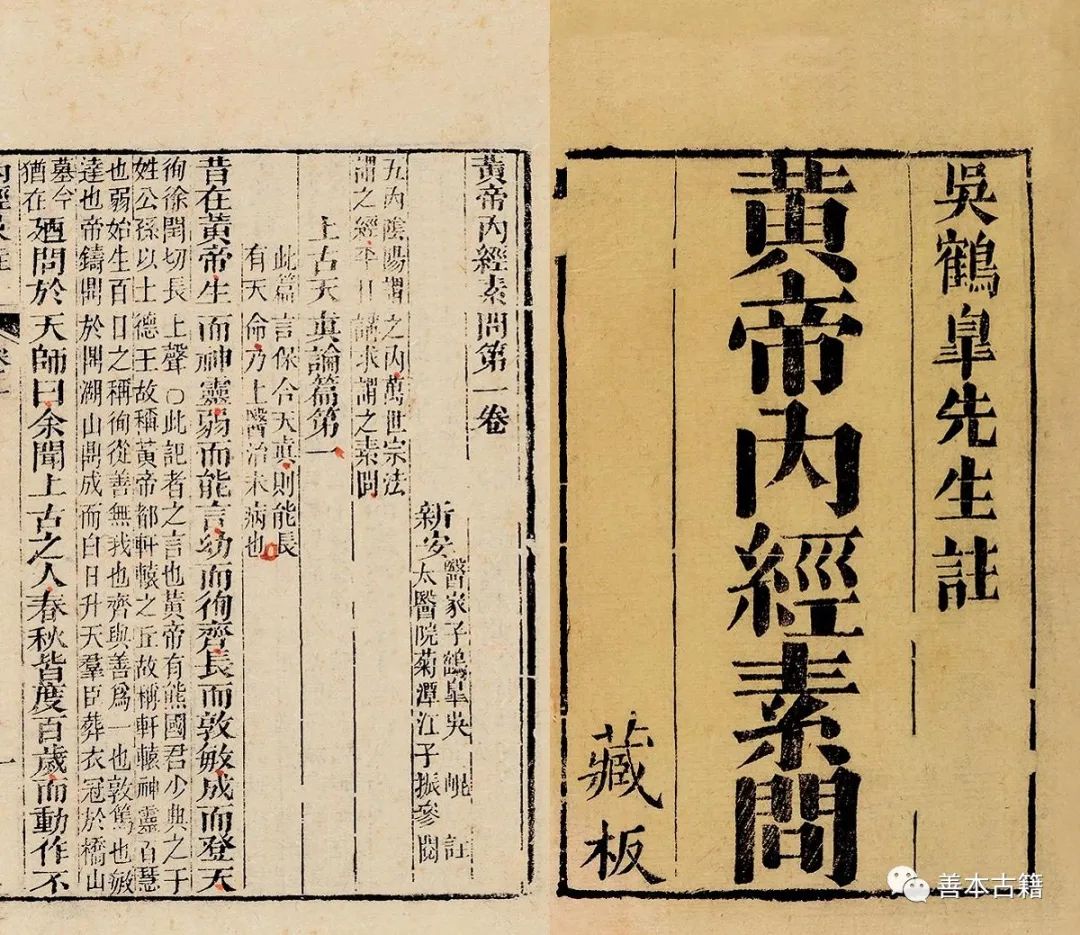 吳鶴皐先生註
黃帝內經素問
藏板
黃帝內經素問第一卷
新安
醫家子鶴皐吳崐註
太醫院菊潭江子振參閱
五內陰陽謂之內萬世宗法
謂之經平日講求謂之素問
上古天真論篇第一
此篇言保合天真則能長
有天命乃上醫治未病也
昔在黃帝生而神靈弱而能言幼而徇齊長而敦敏成而登天
徇徐閏切長上聲○此記者之言也黃帝有熊國君少典之子
姓公孫以土德王故稱黃帝都軒轅之丘故稱軒轅神靈百慧
也弱始生百日之稱徇從善無我也齊與善爲一也敦篤也敏
達也帝鑄鼎於鼎湖山鼎成而白日升天羣臣葬衣冠於橋山
墓今
猶在
廼問於天師曰余聞上古之人春秋皆度百歲而動作不
一
善本古籍